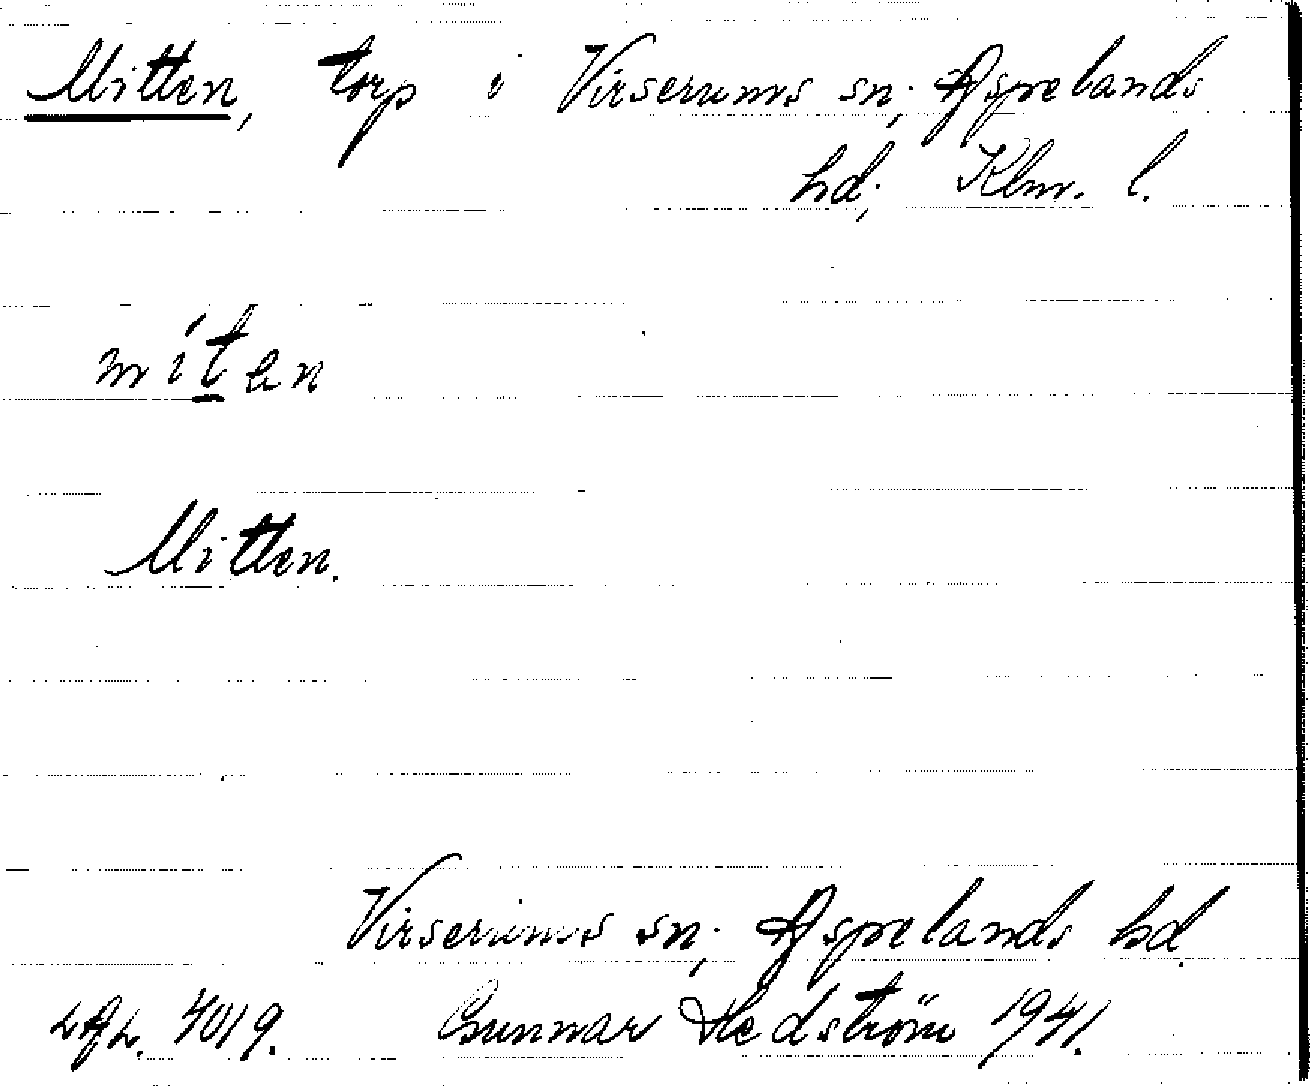 Mitten, torp i Virserums sn; Aspelands
hd; Klm. l.
míten
Mitten.
Virserums sn; Aspelands hd.
LAL. 4019. Gunnar Hedström 1941.